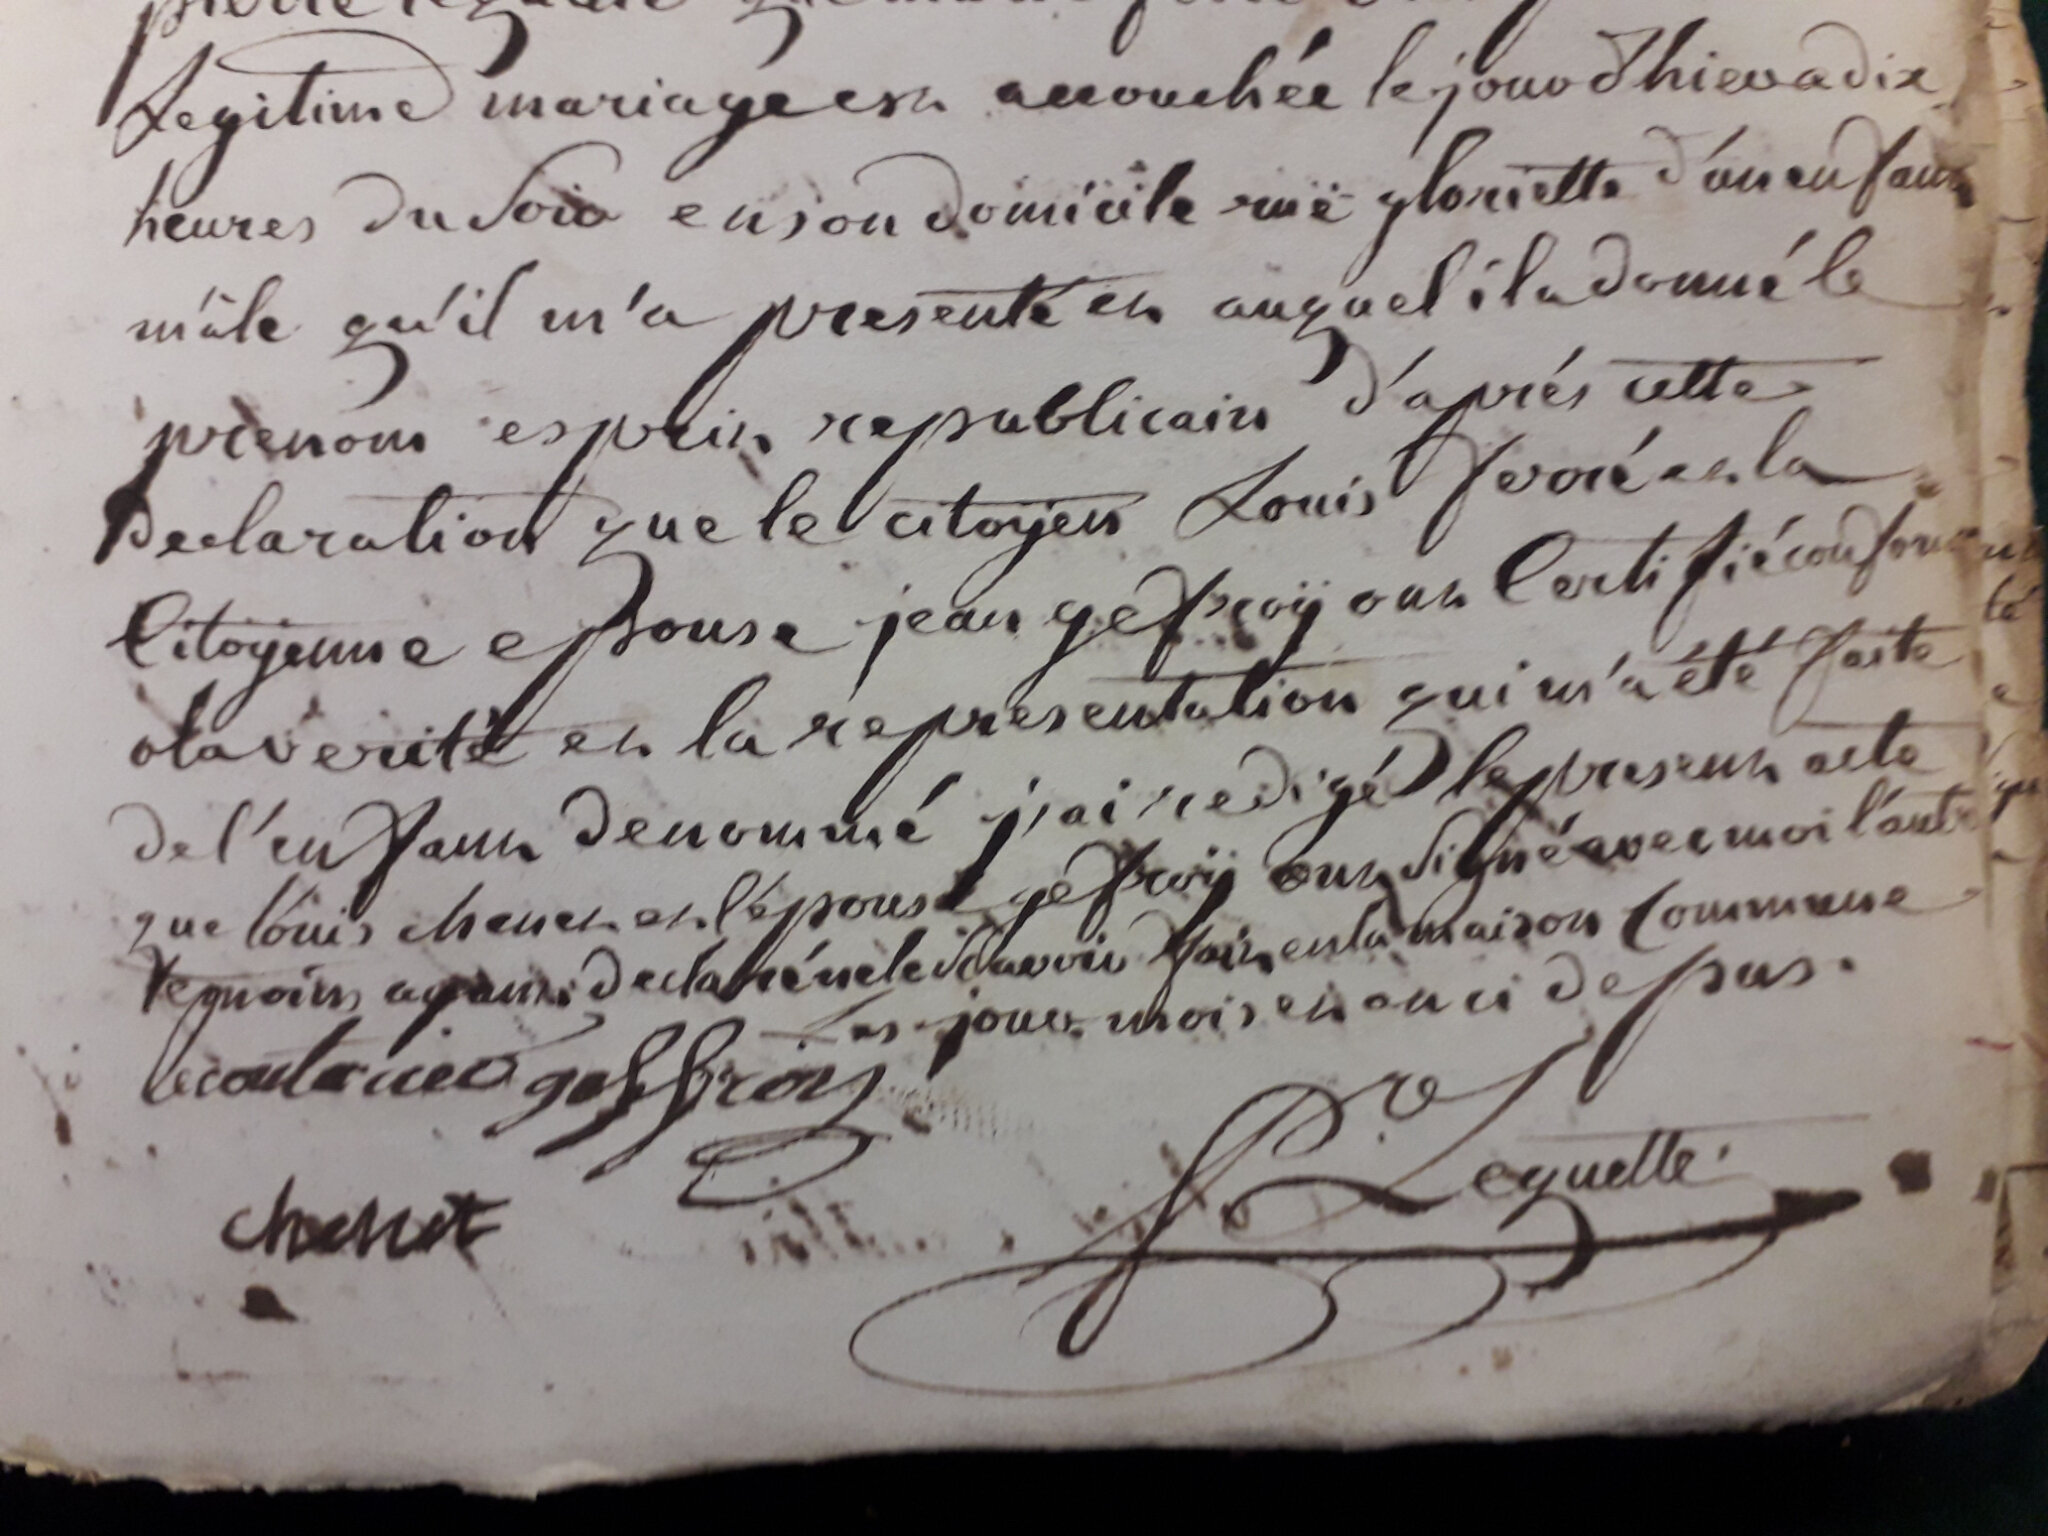 Legitime mariage est accouchée le jour d'hier a dix
heures du soir en son domicile ruë gloriette d'un enfant
mâle qu'il m'a presenté et auquel il a donné le
prenom esprit republicain d'aprés cette
declaration que le citoyen Louis et la
Citoyenne epouse jean geffroÿ ont Certifié conforme
a la verité et la representation qui m'a été faite
de l'enfant denommé j'ai redigé le present acte
que louis chenet et l'épouse geffroÿ ont signé avec moi l'autre
temoins ayant declaré ne le sçavoir fait en la maison Commune
Les jour mois et an ci dessus.
lecouturier geffrois
chenet
Lequette